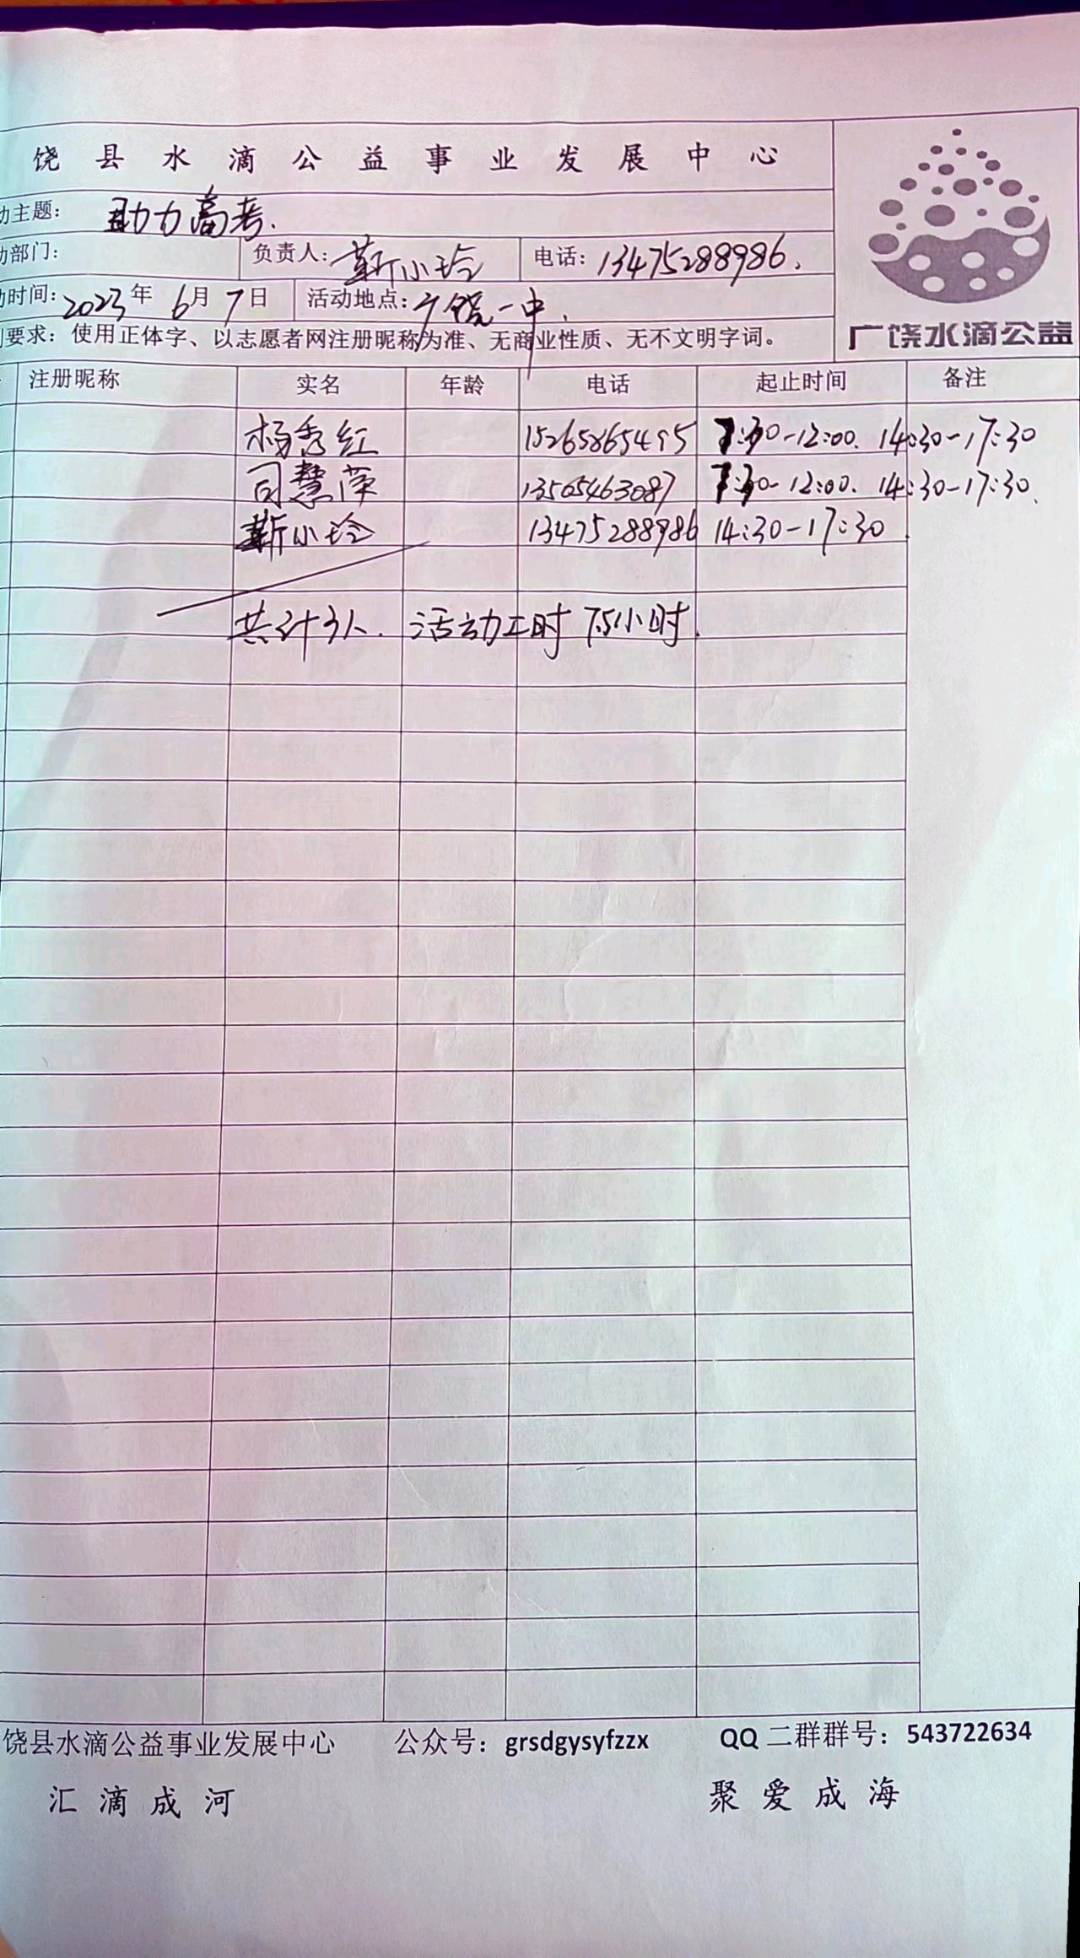 饶县水滴公益事业发展中心
动主题： 助力高考.
动部门： 负责人：靳小玲 电话：13475288986.
动时间：2023年 6月7日 活动地点：广饶一中.
要求：使用正体字、以志愿者网注册昵称为准、无商业性质、无不文明字词。
广饶水滴公益
注册昵称 实名 年龄 电话 起止时间 备注
杨秀红 15265865495 7:30-12:00. 14:30-17:30
司慧萍 13505463087 7:30-12:00. 14:30-17:30.
靳小玲 13475288986 14:30-17:30
共计3人. 活动工时 7.5小时.
饶县水滴公益事业发展中心 公众号：grsdgysyfzzx QQ二群群号：543722634
汇滴成河 聚爱成海